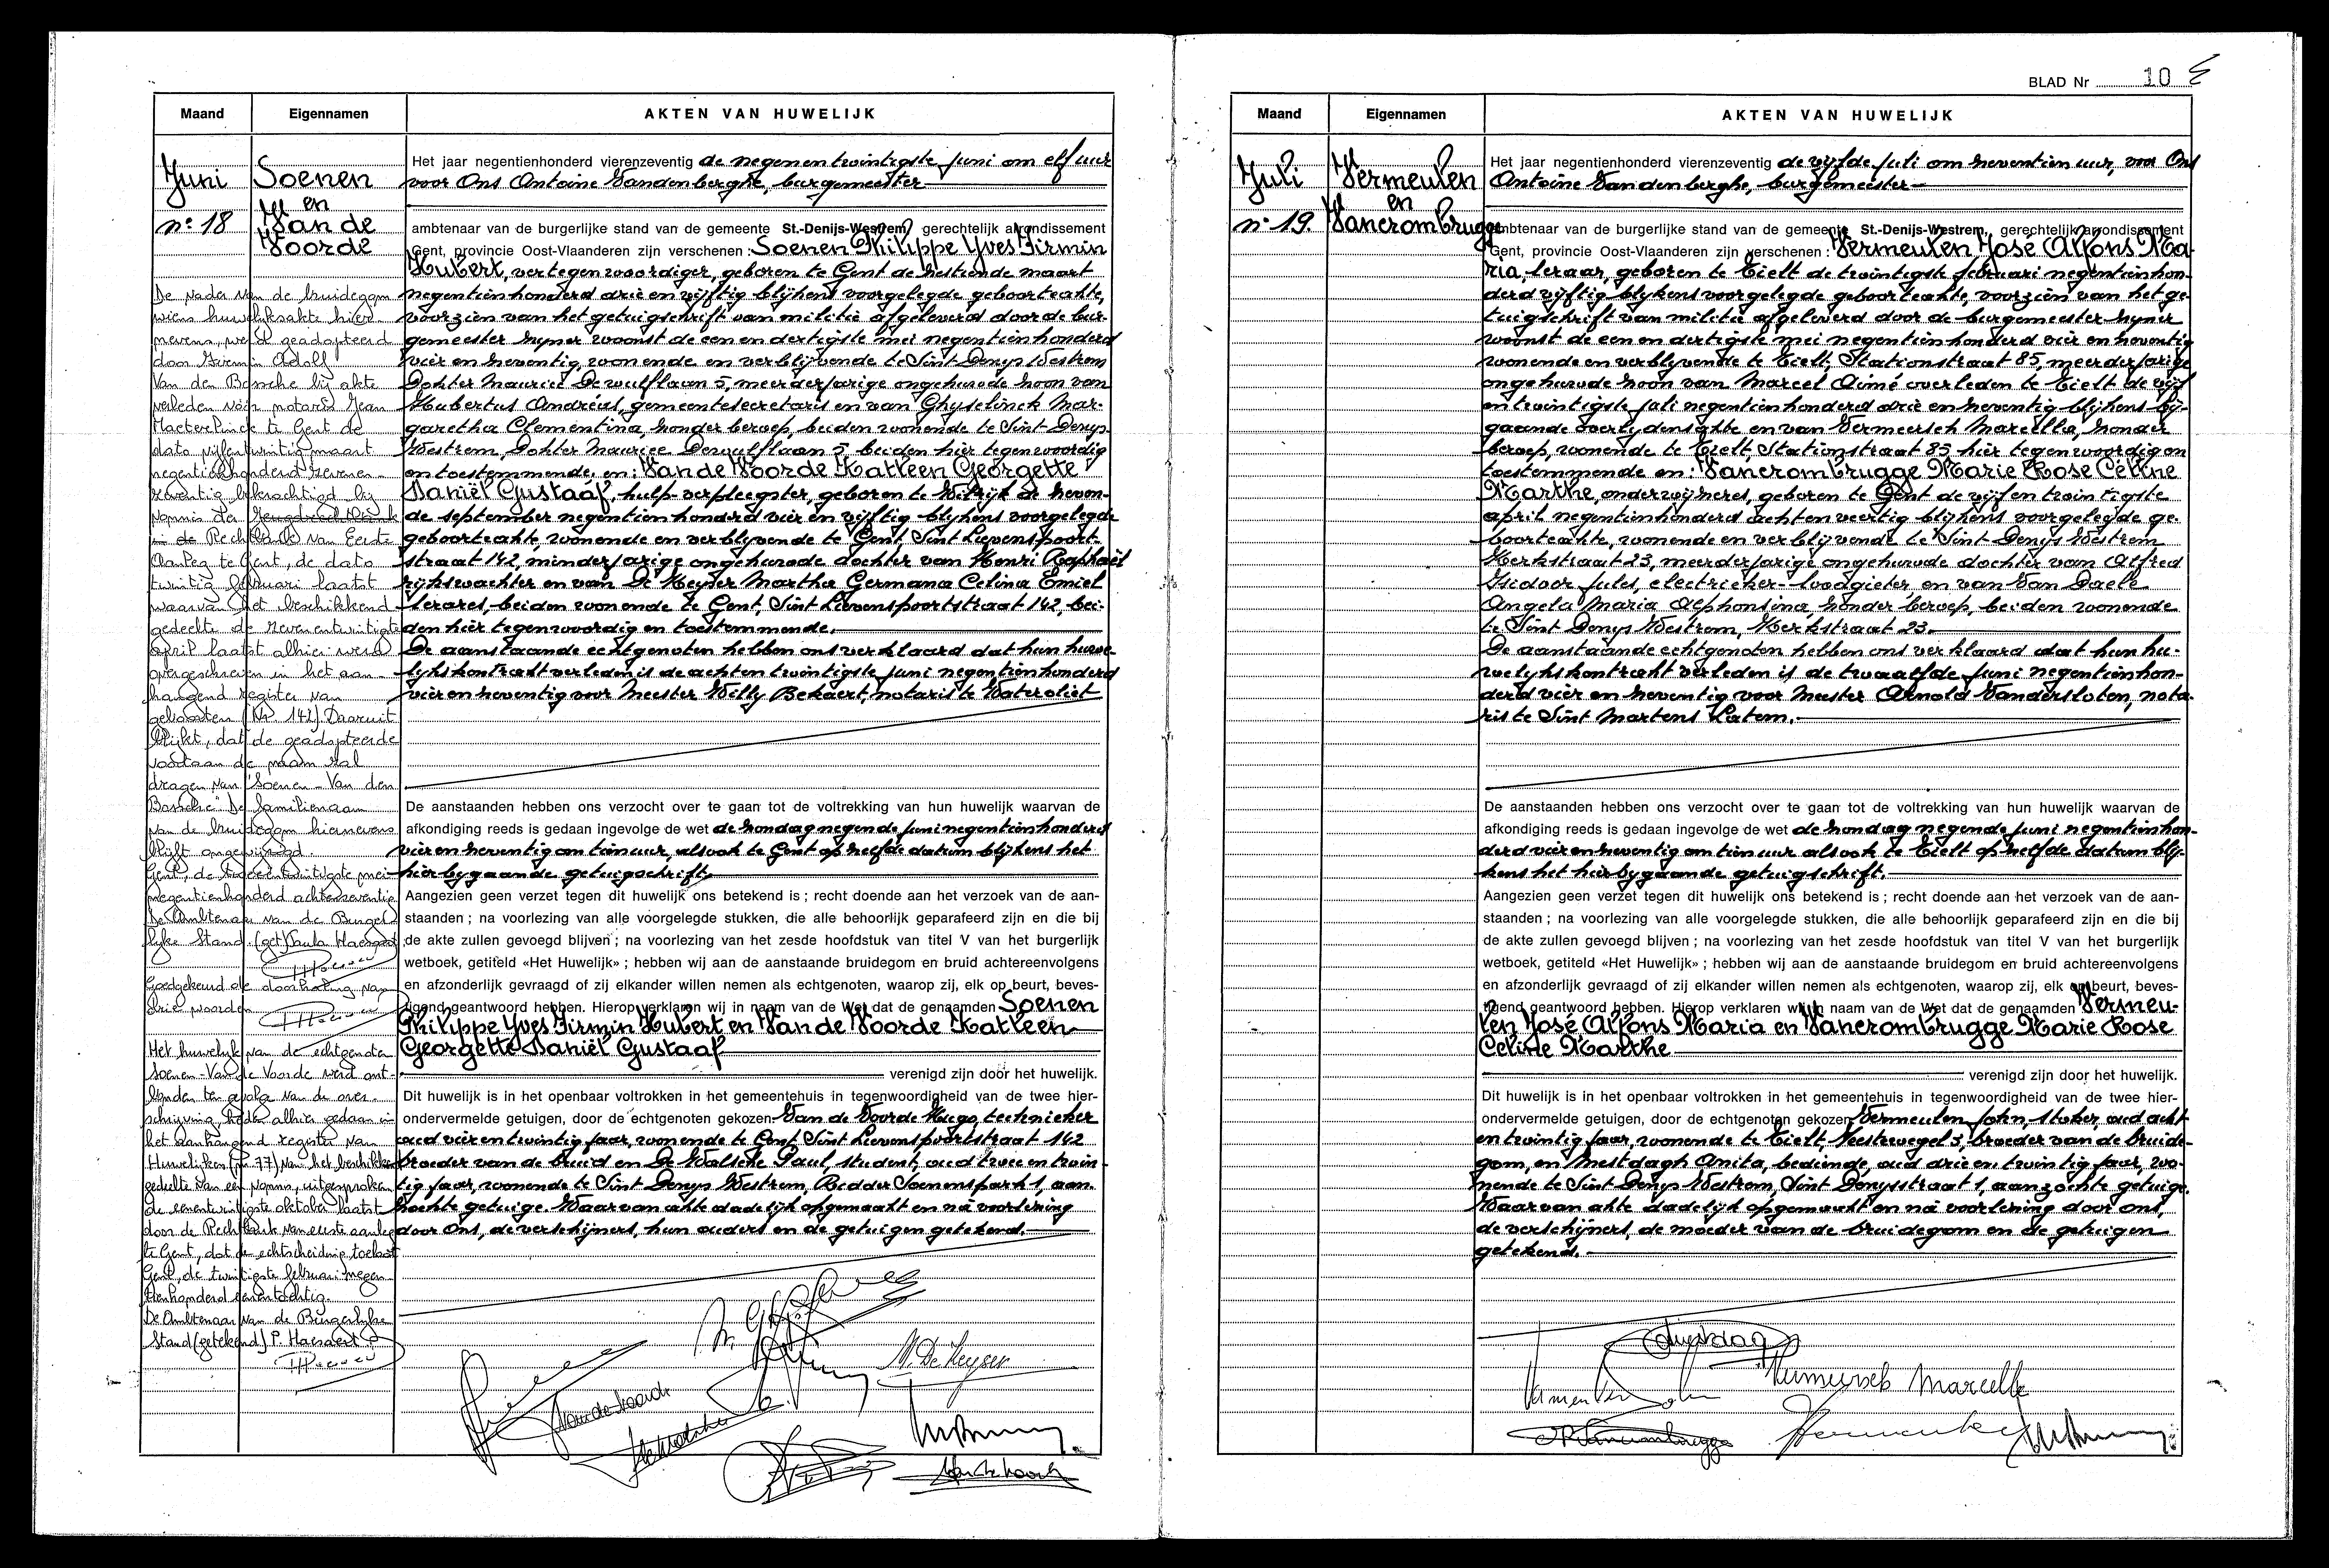 Maand
Eigennamen
AKTEN VAN HUWELIJK
Juni
n° 18
Soenen
en
Van de
Voorde
Het jaar negentienhonderd vierenzeventig de negenentwintigste juni om elf uur
voor Ons Antoine Vandenberghe, burgemeester
ambtenaar van de burgerlijke stand van de gemeente St.-Denijs-Westrem, gerechtelijk arrondissement
Gent, provincie Oost-Vlaanderen zijn verschenen : Soenen Philippe Yves Firmin
Hubert, vertegenwoordiger, geboren te Gent de zestiende maart
negentienhonderd drie en vijftig blijkens voorgelegde geboorteakte,
voorzien van het getuigschrift van militie afgeleverd door de bur-
gemeester zijner woonst de een en dertigste mei negentienhonderd
vier en zeventig, wonende en verblijvende te Sint-Denys Westrem
Dokter Maurice Dewulflaan 5, meerderjarige ongehuwde zoon van
Hubertus Andréas, gemeentesecretaris en van Ghyselinck Mar-
garetha Clementina, zonder beroep, beiden wonende te Sint-Denys-
Westrem, Dokter Maurice Dewulflaan 5, beiden hier tegenwoordig
en toestemmende, en : Van de Voorde Katleen Georgette
Daniël Gustaaf, hulp-verpleegster, geboren te Wilrijk de zeven-
de september negentienhonderd vier en vijftig blijkens voorgelegde
geboorteakte, wonende en verblijvende te Gent, Sint Lievenspoort-
straat 142, minderjarige ongehuwde dochter van Henri Raphaël
rijkswachter en van De Keyser Martha Germana Celina Emiel
lerares, beiden wonende te Gent, Sint Lievenspoortstraat 142, bei-
den hier tegenwoordig en toestemmende.
De aanstaande echtgenoten hebben ons verklaard dat hun huwe-
lijkskontrakt verleden is de achtentwintigste juni negentienhonderd
vier en zeventig voor Meester Willy Bekaert, notaris te Watervliet
De aanstaanden hebben ons verzocht over te gaan tot de voltrekking van hun huwelijk waarvan de
afkondiging reeds is gedaan ingevolge de wet de zondag negende juni negentienhonderd
vier en zeventig om tien uur, alsook te Gent op zelfde datum blijkens het
hierbygaande getuigschrift.
Aangezien geen verzet tegen dit huwelijk ons betekend is ; recht doende aan het verzoek van de aan-
staanden ; na voorlezing van alle voorgelegde stukken, die alle behoorlijk geparafeerd zijn en die bij
de akte zullen gevoegd blijven ; na voorlezing van het zesde hoofdstuk van titel V van het burgerlijk
wetboek, getiteld «Het Huwelijk» ; hebben wij aan de aanstaande bruidegom en bruid achtereenvolgens
en afzonderlijk gevraagd of zij elkander willen nemen als echtgenoten, waarop zij, elk op beurt, beves-
tigend geantwoord hebben. Hierop verklaren wij in naam van de Wet dat de genaamden Soenen
Philippe Yves Firmin Hubert en Van de Voorde Katleen
Georgette Daniël Gustaaf
verenigd zijn door het huwelijk.
Dit huwelijk is in het openbaar voltrokken in het gemeentehuis in tegenwoordigheid van de twee hier-
ondervermelde getuigen, door de echtgenoten gekozen. Van de Voorde Hugo, technieker
oud vier en twintig jaar, wonende te Gent Sint Lievenspoortstraat 142
broeder van de bruid en De Walsche Paul, student, oud twee en twin-
tig jaar, wonende te Sint Denys Westrem, Redder Soenenspark 1, aan-
zochte getuige. Waarvan akte dadelijk opgemaakt en na voorlezing
door Ons, de verschijners, hun ouders en de getuigen getekend.
De vader van de bruidegom
wiens huwelijksakte hier-
nevens, werd geadopteerd
door Firmin Adolf
Van den Bossche bij akte
verleden voor notaris Jean
Maeterlinck te Gent de
dato vijfentwintig maart
negentienhonderd zeven-
zeventig bekrachtigd bij
vonnis der Jeugdrechtbank
in de Rechtbank van Eerste
Aanleg te Gent, de dato
twintig februari laatst
waarvan het beschikkend
gedeelte de zevenentwintigste
april laatst alhier werd
overgeschreven in het aan-
hangend register van
geboorten (Nr 142). Daaruit
blijkt, dat de geadopteerde
voortaan de naam zal
dragen van "Soenen - Van den
Bossche". De familienaam
van de bruidegom hiernevens
blijft ongewijzigd.
Gent, de tweeëntwintigste mei
negentienhonderd achtenzeventig
De Ambtenaar van de Burger-
lijke Stand. (get) Paula Haesaert
Goedgekeurd de doorhaling van
drie woorden
Het huwelijk van de echtgenoten
Soenen - Van de Voorde werd ont-
bonden ten gevolge van de over-
schrijving heden alhier gedaan in
het aanhangend register van
Huwelijken (nr 77) van het beschikkend
gedeelte van een vonnis, uitgesproken
de eenentwintigste oktober laatst
door de Rechtbank van eerste aanleg
te Gent, dat de echtscheiding toelaat
Gent, de twintigste februari negen-
tienhonderd eenentachtig.
De Ambtenaar van de Burgerlijke
Stand (getekend) P. Haesaert
M. De Keyser
Van de Voorde
BLAD Nr 10
Maand
Eigennamen
AKTEN VAN HUWELIJK
Juli
n° 19
Vermeulen
en
Vancrombrugge
Het jaar negentienhonderd vierenzeventig de vijfde juli om zeventien uur, voor Ons
Antoine Vandenberghe, burgemeester
ambtenaar van de burgerlijke stand van de gemeente St.-Denijs-Westrem, gerechtelijk arrondissement
Gent, provincie Oost-Vlaanderen zijn verschenen : Vermeulen José Alfons Ma-
ria, leraar, geboren te Tielt de twintigste februari negentienhon-
derd vijftig blijkens voorgelegde geboorteakte, voorzien van het ge-
tuigschrift van militie afgeleverd door de burgemeester zijner
woonst de een en dertigste mei negentienhonderd vier en zeventig
wonende en verblijvende te Tielt, Stationstraat 85, meerderjarige
ongehuwde zoon van Marcel Aimé overleden te Tielt de vijf
en twintigste juli negentienhonderd drie en zeventig blijkens bij-
gaande overlijdensakte en van Vermeersch Marcella, zonder
beroep, wonende te Tielt, Stationstraat 85 hier tegenwoordig en
toestemmende en : Vancrombrugge Marie Rose Céline
Marthe, onderwijzeres, geboren te Gent de vijf en twintigste
april negentienhonderd acht en veertig blijkens voorgelegde ge-
boorteakte, wonende en verblijvende te Sint Denys Westrem
Kerkstraat 23, meerderjarige ongehuwde dochter van Alfred
Isidoor Jules, electrieker-loodgieter, en van Van Daele
Angela Maria Alphonsina zonder beroep, beiden wonende
te Sint Denys Westrem, Kerkstraat 23.
De aanstaande echtgenoten hebben ons verklaard dat hun hu-
welijkskontrakt verleden is de twaalfde juni negentienhon-
derd vier en zeventig voor Meester Arnold Vandersloten, nota-
ris te Sint Martens Latem.
De aanstaanden hebben ons verzocht over te gaan tot de voltrekking van hun huwelijk waarvan de
afkondiging reeds is gedaan ingevolge de wet de zondag negende juni negentienhon-
derd vier en zeventig om tien uur alsook te Tielt op zelfde datum blij-
kens het hierbygaande getuigschrift.
Aangezien geen verzet tegen dit huwelijk ons betekend is ; recht doende aan het verzoek van de aan-
staanden ; na voorlezing van alle voorgelegde stukken, die alle behoorlijk geparafeerd zijn en die bij
de akte zullen gevoegd blijven ; na voorlezing van het zesde hoofdstuk van titel V van het burgerlijk
wetboek, getiteld «Het Huwelijk» ; hebben wij aan de aanstaande bruidegom en bruid achtereenvolgens
en afzonderlijk gevraagd of zij elkander willen nemen als echtgenoten, waarop zij, elk op beurt, beves-
tigend geantwoord hebben. Hierop verklaren wij in naam van de Wet dat de genaamden Vermeu-
len José Alfons Maria en Vancrombrugge Marie Rose
Céline Marthe
verenigd zijn door het huwelijk.
Dit huwelijk is in het openbaar voltrokken in het gemeentehuis in tegenwoordigheid van de twee hier-
ondervermelde getuigen, door de echtgenoten gekozen Vermeulen John, stoker, oud acht
en twintig jaar, wonende te Tielt, Neestwegel 3, broeder van de bruide-
gom, en Mestdagh Anita, bediende, oud drie en twintig jaar, wo-
nende te Sint Denys Westrem, Sint Denysstraat 1, aanzochte getuige.
Waarvan akte dadelijk opgemaakt en na voorlezing door ons,
de verschijners, de moeder van de bruidegom en de getuigen
getekend.
Vermeersch Marcella